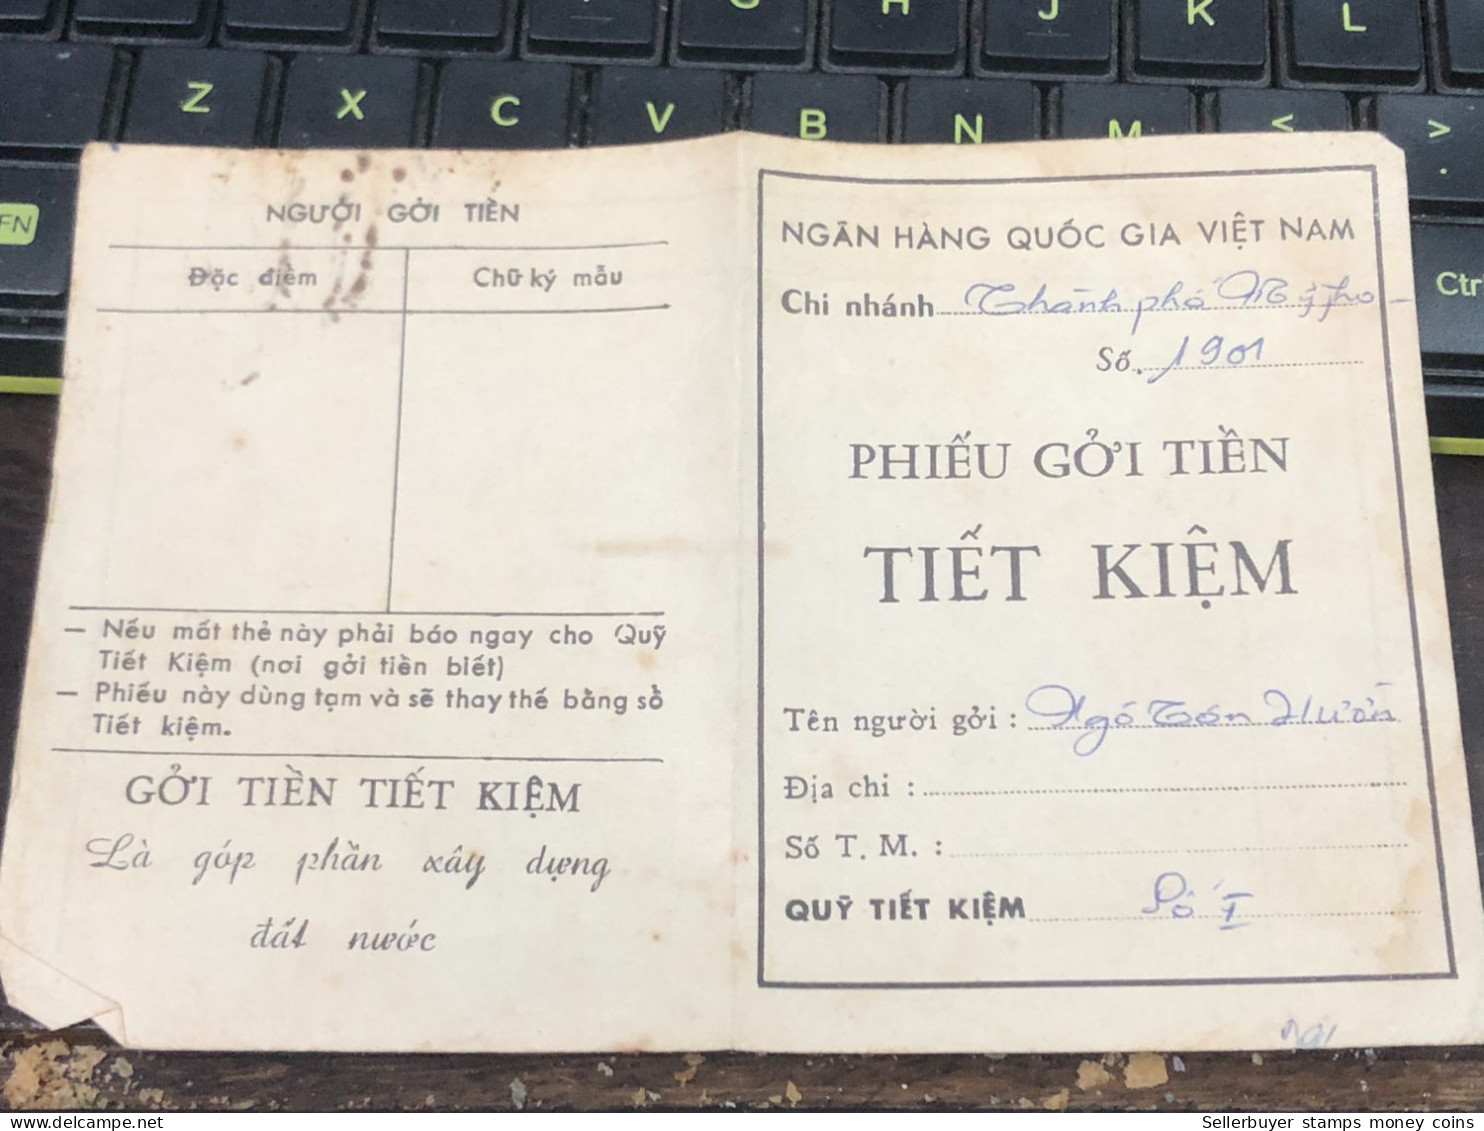 G H J K L
Z X C V B N M < >
FN
Ctr
NGƯỜI GỞI TIỀN
Đặc điểm
Chữ ký mẫu
— Nếu mất thẻ này phải báo ngay cho Quỹ
Tiết Kiệm (nơi gởi tiền biết)
— Phiếu này dùng tạm và sẽ thay thế bằng sổ
Tiết kiệm.
GỞI TIỀN TIẾT KIỆM
Là góp phần xây dựng
đất nước
NGÂN HÀNG QUỐC GIA VIỆT NAM
Chi nhánh Thành phố Mỹ Tho
Số 1901
PHIẾU GỞI TIỀN
TIẾT KIỆM
Tên người gởi : Ngô
Địa chi :
Số T. M. :
QUỸ TIẾT KIỆM Số I
Sellerbuyer stamps money coins